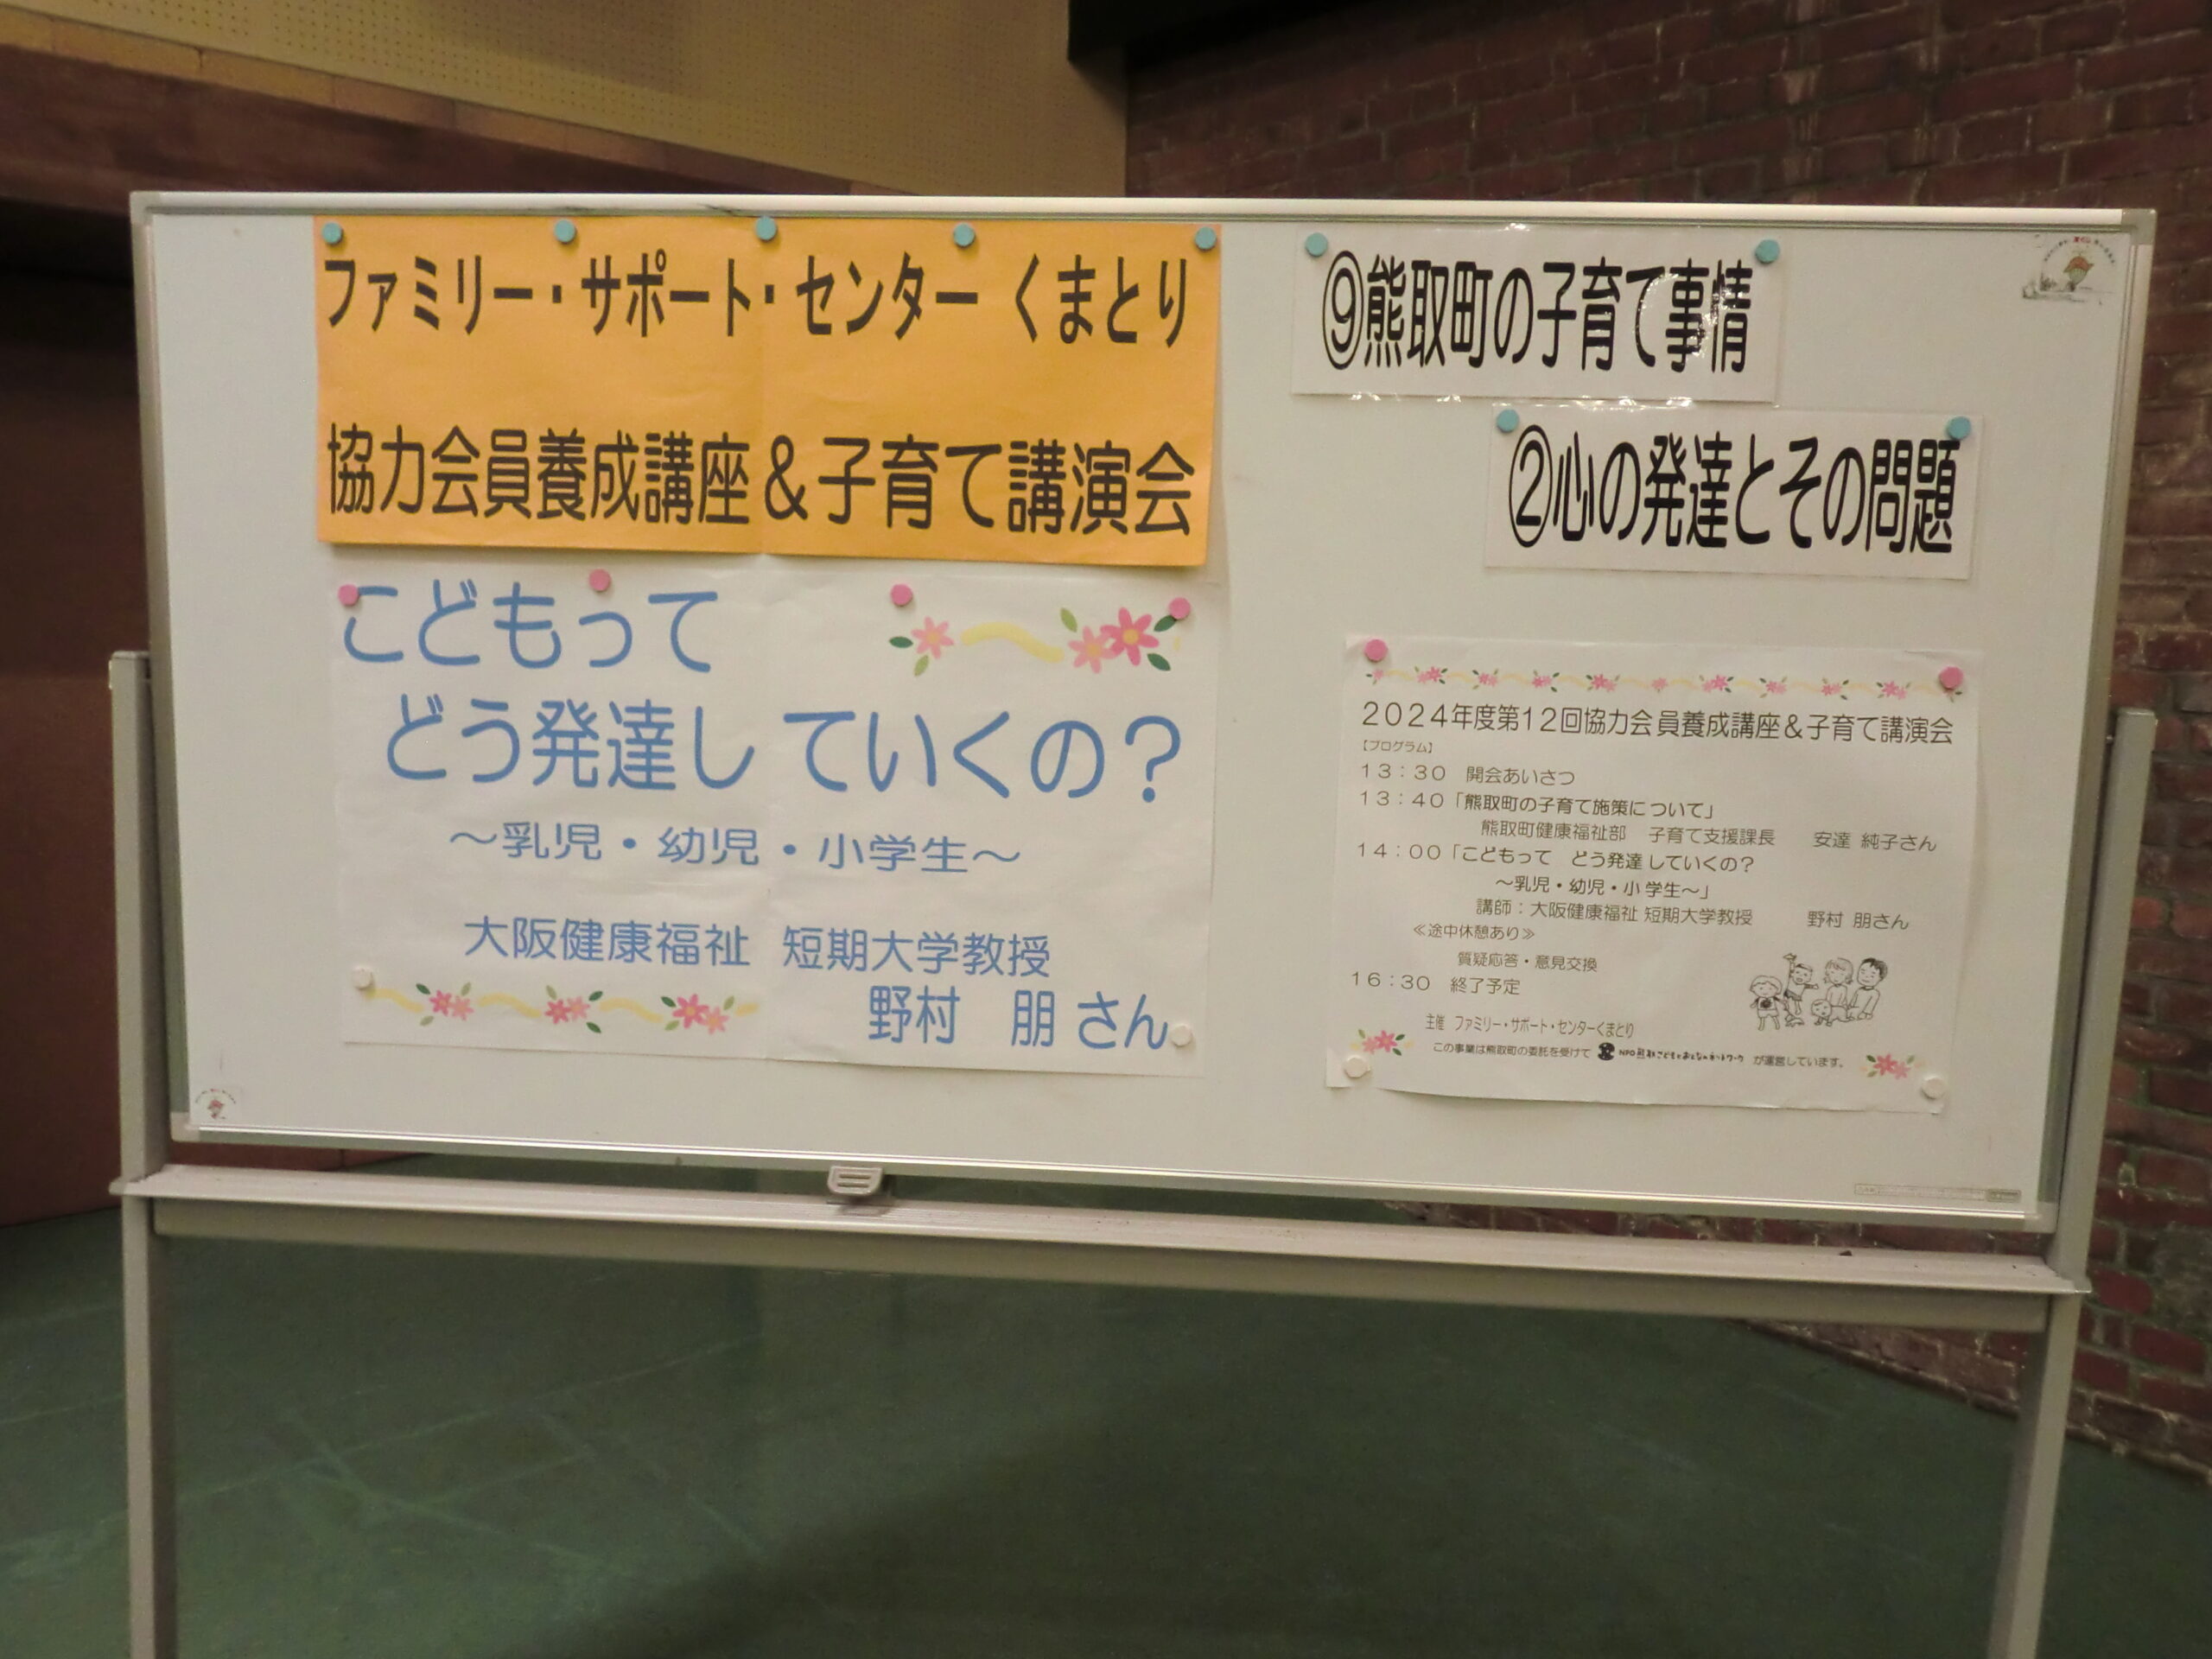 ファミリー・サポート・センター くまとり
協力会員養成講座＆子育て講演会
こどもって
どう発達していくの？
～乳児・幼児・小学生～
大阪健康福祉 短期大学教授
野村 朋 さん
⑨熊取町の子育て事情
②心の発達とその問題
２０２４年度第１２回協力会員養成講座＆子育て講演会
【プログラム】
１３：３０ 開会あいさつ
１３：４０「熊取町の子育て施策について」
熊取町健康福祉部 子育て支援課長 安達 純子さん
１４：００「こどもって どう発達していくの？
～乳児・幼児・小学生～」
講師：大阪健康福祉 短期大学教授 野村 朋さん
≪途中休憩あり≫
質疑応答・意見交換
１６：３０ 終了予定
主催 ファミリー・サポート・センターくまとり
この事業は熊取町の委託を受けて NPO 熊取こどもとおとなのネットワーク が運営しています。